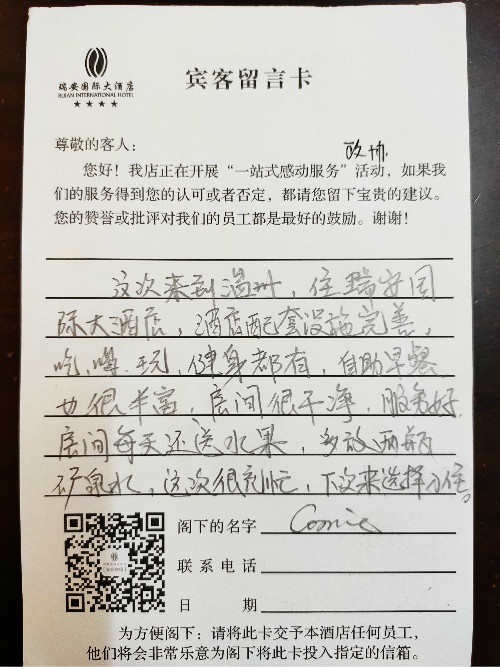 瑞安国际大酒店
RUIAN INTERNATIONAL HOTEL
★★★★
宾客留言卡
尊敬的客人：
政协
您好！我店正在开展“一站式感动服务”活动，如果我
们的服务得到您的认可或者否定，都请您留下宝贵的建议。
您的赞誉或批评对我们的员工都是最好的鼓励。谢谢！
这次来到温州，住瑞安国
际大酒店，酒店配套设施完善，
吃，喝，玩，健身都有，自助早餐
也很丰富，房间很干净，服务好，
房间每天还送水果，多放两瓶
矿泉水，这次很匆忙，下次来选择住。
阁下的名字
联系电话
日 期
为方便阁下：请将此卡交予本酒店任何员工，
他们将会非常乐意为阁下将此卡投入指定的信箱。